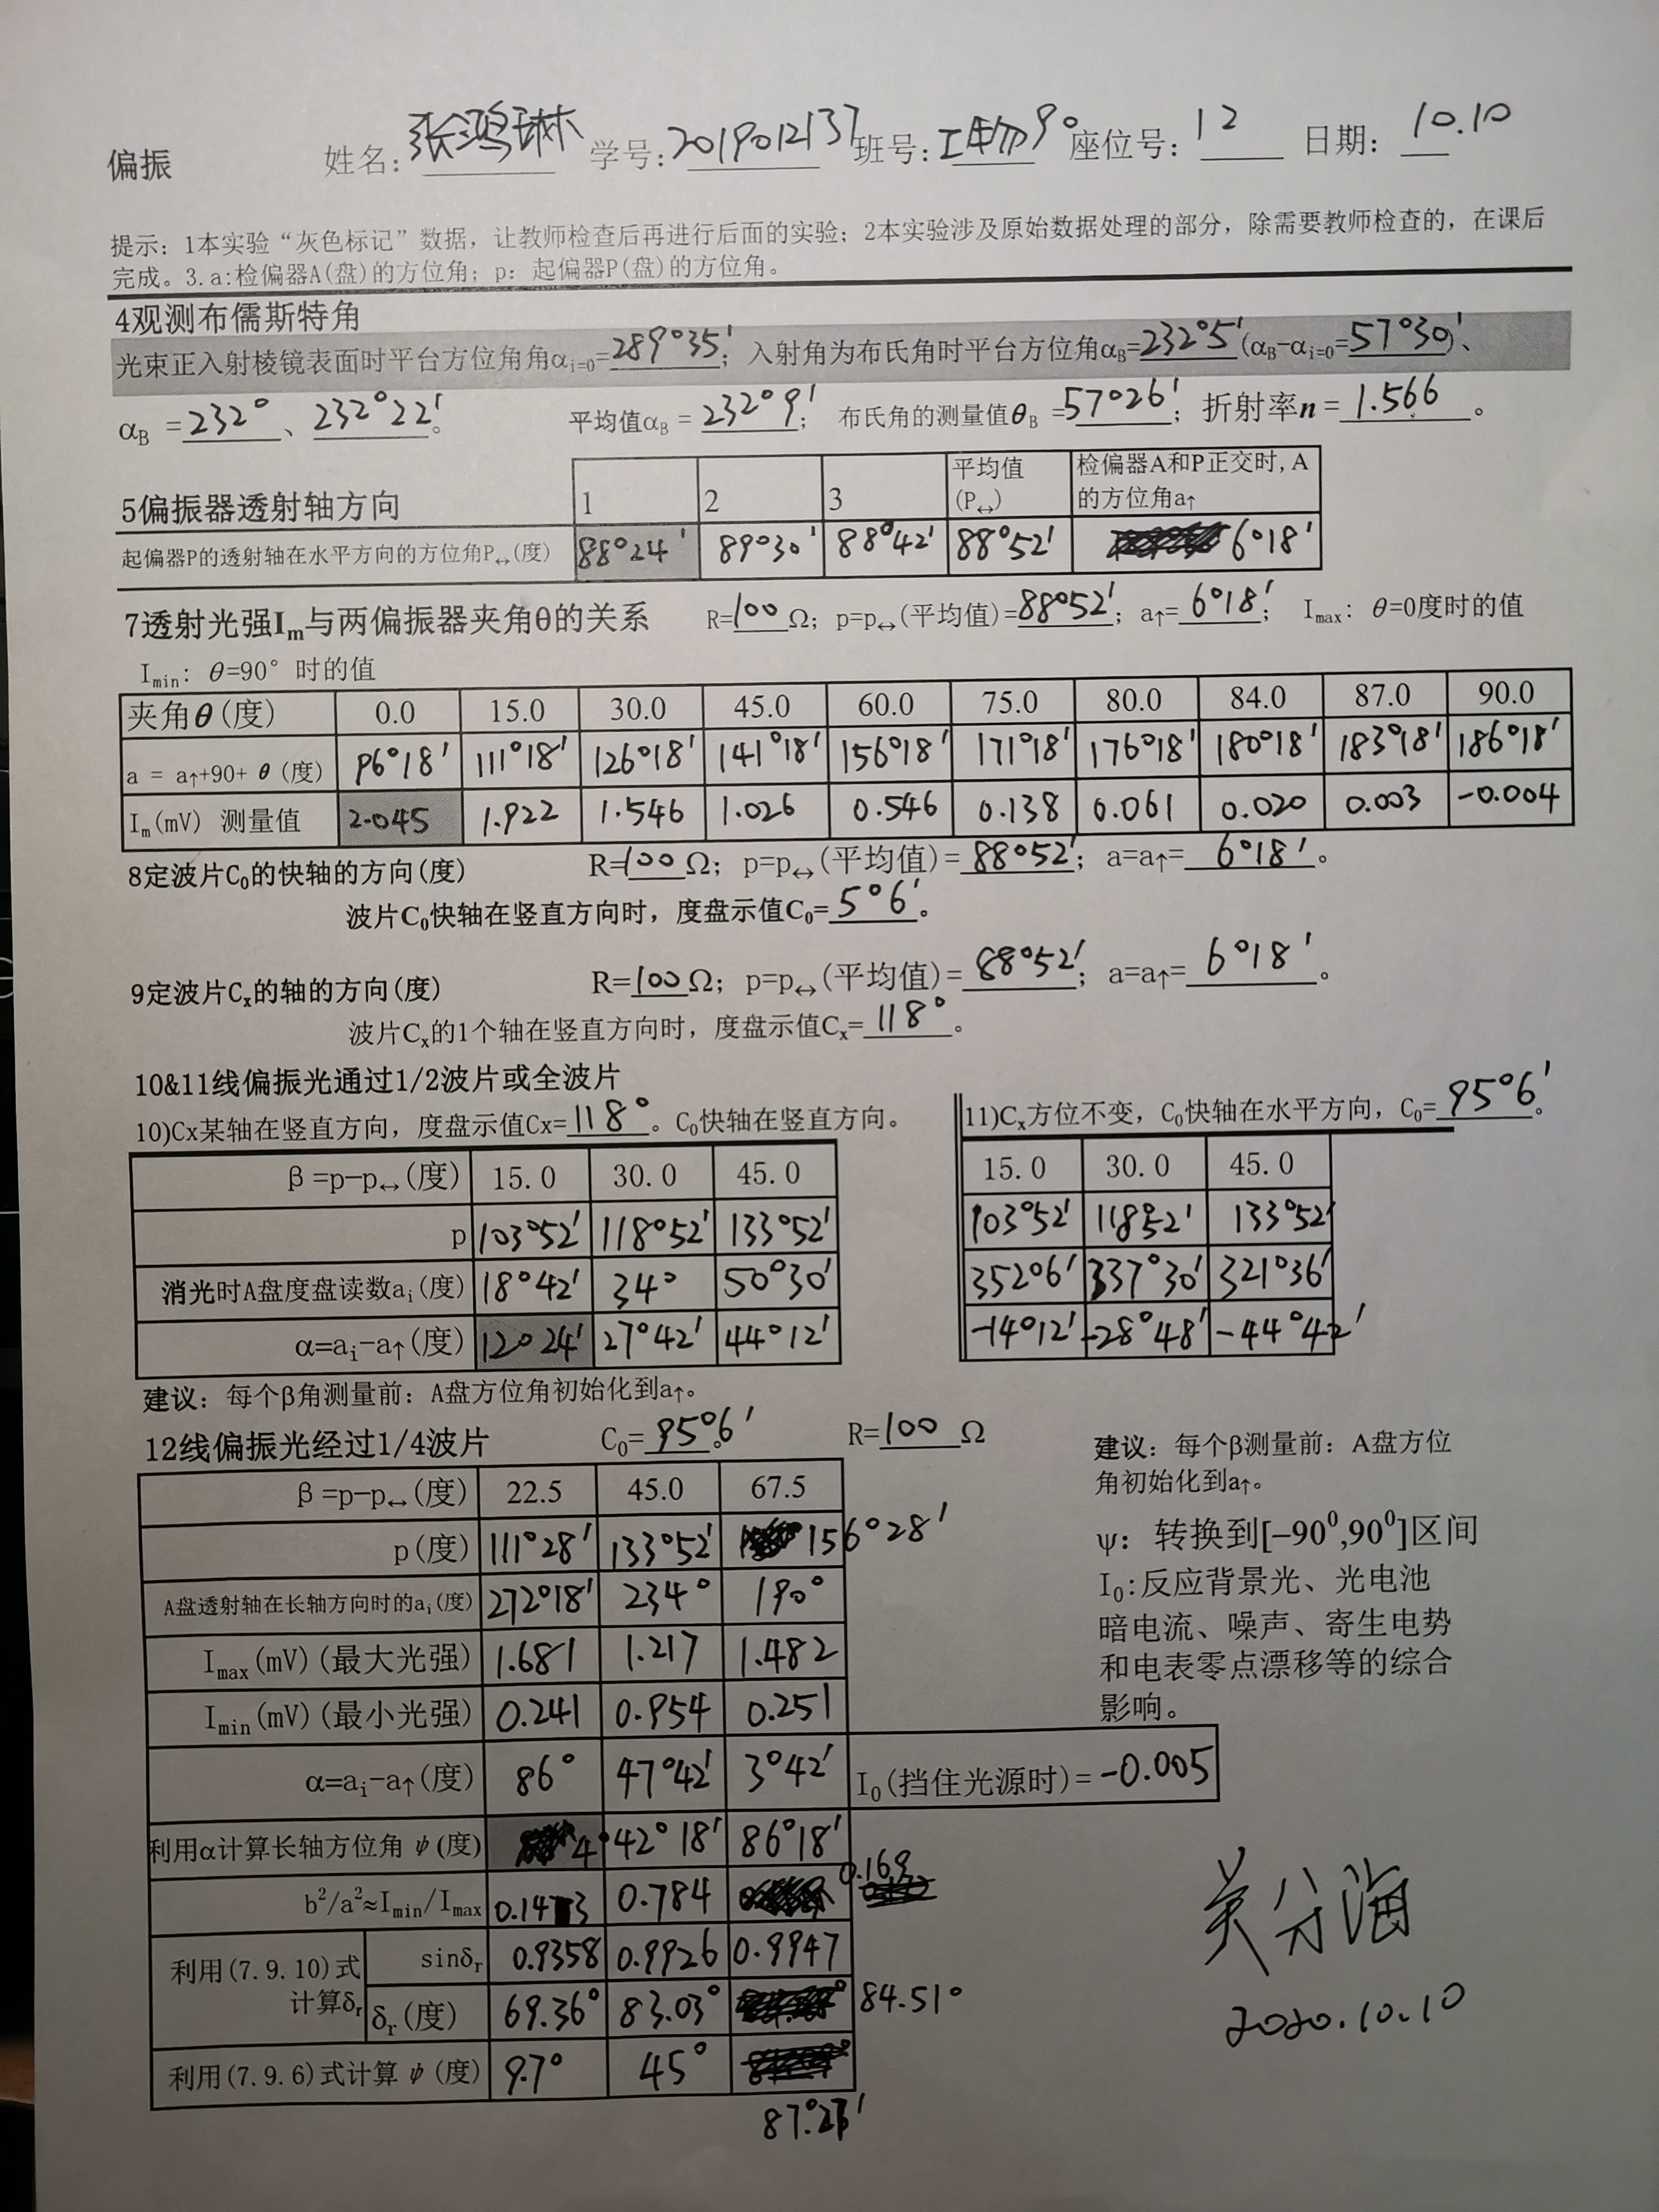 偏振 姓名: 张鸿琳 学号: 2019012137 班号: 工物90 座位号: 12 日期: 10.10
提示: 1本实验“灰色标记”数据, 让教师检查后再进行后面的实验; 2本实验涉及原始数据处理的部分, 除需要教师检查的, 在课后
完成。3.a:检偏器A(盘)的方位角; p: 起偏器P(盘)的方位角。
4观测布儒斯特角
光束正入射棱镜表面时平台方位角角αi=0=289°35′; 入射角为布氏角时平台方位角αB=232°5′(αB-αi=0=57°30′)、
αB =232°、232°22′。 平均值αB = 232°9′; 布氏角的测量值θB =57°26′; 折射率n = 1.566。
5偏振器透射轴方向 1 2 3 平均值(P↔) 检偏器A和P正交时, A的方位角a↑
起偏器P的透射轴在水平方向的方位角P↔(度) 88°24′ 89°30′ 88°42′ 88°52′ 6°18′
7透射光强Im与两偏振器夹角θ的关系 R=100Ω; p=p↔(平均值)=88°52′; a↑=6°18′; Imax: θ=0度时的值
Imin: θ=90° 时的值
夹角θ(度) 0.0 15.0 30.0 45.0 60.0 75.0 80.0 84.0 87.0 90.0
a = a↑+90+ θ (度) 96°18′ 111°18′ 126°18′ 141°18′ 156°18′ 171°18′ 176°18′ 180°18′ 183°18′ 186°18′
Im(mV) 测量值 2.045 1.922 1.546 1.026 0.546 0.138 0.061 0.020 0.003 -0.004
8定波片C0的快轴的方向(度) R=100Ω; p=p↔(平均值)=88°52′; a=a↑=6°18′。
波片C0快轴在竖直方向时, 度盘示值C0=5°6′。
9定波片Cx的轴的方向(度) R=100Ω; p=p↔(平均值)=88°52′; a=a↑=6°18′。
波片Cx的1个轴在竖直方向时, 度盘示值Cx=118°。
10&11线偏振光通过1/2波片或全波片
10)Cx某轴在竖直方向, 度盘示值Cx=118°。C0快轴在竖直方向。 11)Cx方位不变, C0快轴在水平方向, C0=95°6′。
β=p-p↔(度) 15.0 30.0 45.0 15.0 30.0 45.0
p 103°52′ 118°52′ 133°52′ 103°52′ 118°52′ 133°52′
消光时A盘度盘读数ai(度) 18°42′ 34° 50°30′ 352°6′ 337°30′ 321°36′
α=ai-a↑(度) 12°24′ 27°42′ 44°12′ -14°12′ -28°48′ -44°42′
建议: 每个β角测量前: A盘方位角初始化到a↑。
12线偏振光经过1/4波片 C0=95°6′。 R=100Ω
β=p-p↔(度) 22.5 45.0 67.5
p(度) 111°28′ 133°52′ 156°28′
A盘透射轴在长轴方向时的ai(度) 272°18′ 234° 190°
Imax(mV)(最大光强) 1.681 1.217 1.482
Imin(mV)(最小光强) 0.241 0.954 0.251
α=ai-a↑(度) 86° 47°42′ 3°42′ I0(挡住光源时)=-0.005
利用α计算长轴方位角 ψ(度) 4° 42°18′ 86°18′
b²/a²≈Imin/Imax 0.1433 0.784 0.169
利用(7.9.10)式计算δr sinδr 0.9358 0.9926 0.9947
δr(度) 69.36° 83.03° 84.51°
利用(7.9.6)式计算 ψ(度) 9.7° 45°
建议: 每个β测量前: A盘方位
角初始化到a↑。
ψ: 转换到[-90⁰,90⁰]区间
I0:反应背景光、光电池
暗电流、噪声、寄生电势
和电表零点漂移等的综合
影响。
2020.10.10